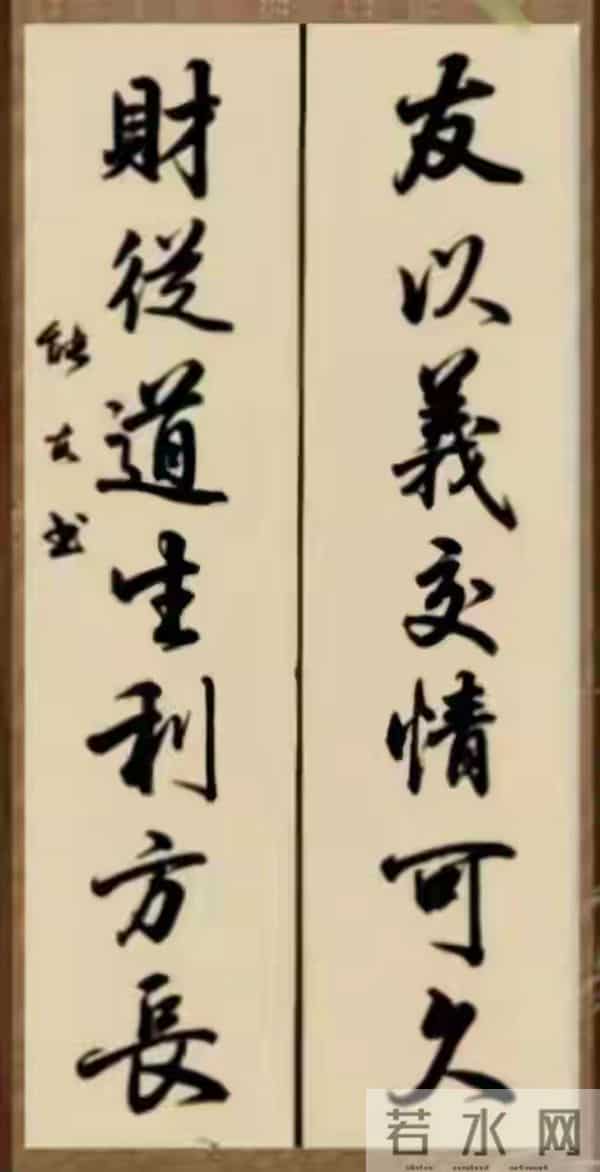 友以義交情可久
財從道生利方長
若水网